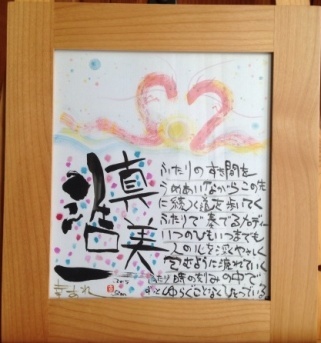 真美
浩一
ふたりのすき間を
うめあいながらこの先
に続く道を歩いてく
ふたりで奏でるメロディー
いつのひもいつまでも
人の心を
包むように流れていく
ふたり時の刻みの中で
ゆらぐことなく
幸あれ